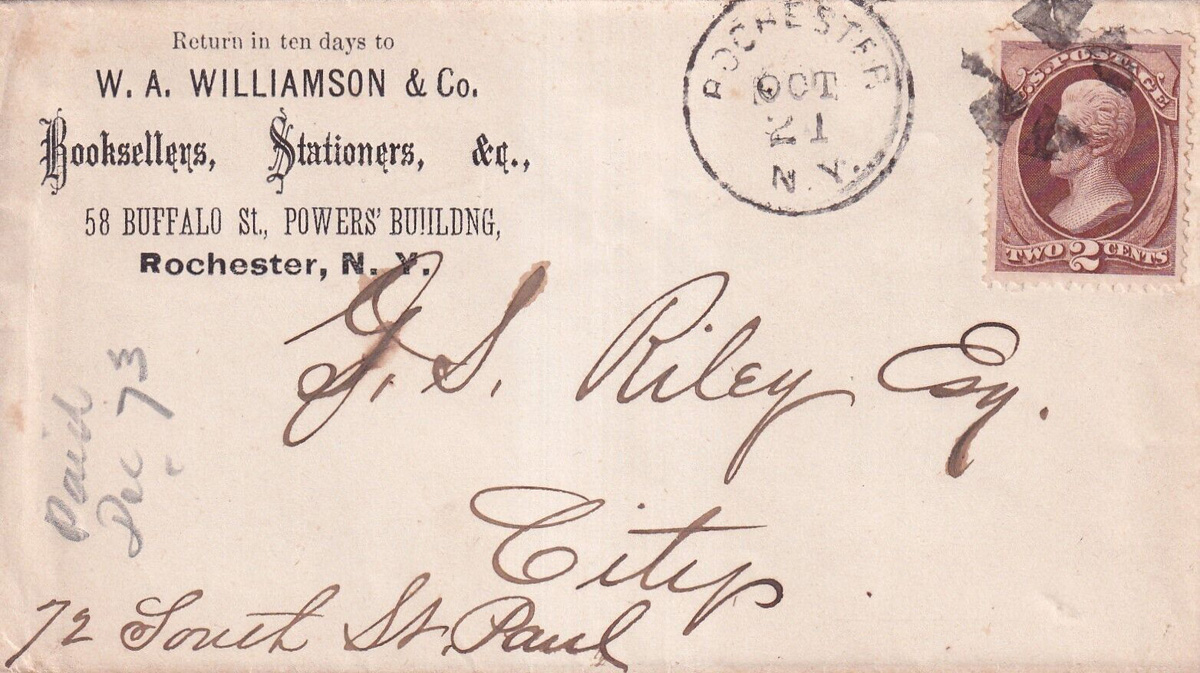 Return in ten days to
W. A. WILLIAMSON & Co.
Booksellers, Stationers, &c.,
58 BUFFALO St., POWERS' BUIILDNG,
Rochester, N. Y.
ROCHESTER
OCT
21
N.Y.
U.S. POSTAGE
TWO 2 CENTS
G. S. Riley Esq.
City
72 South St. Paul
Paid
Dec 73